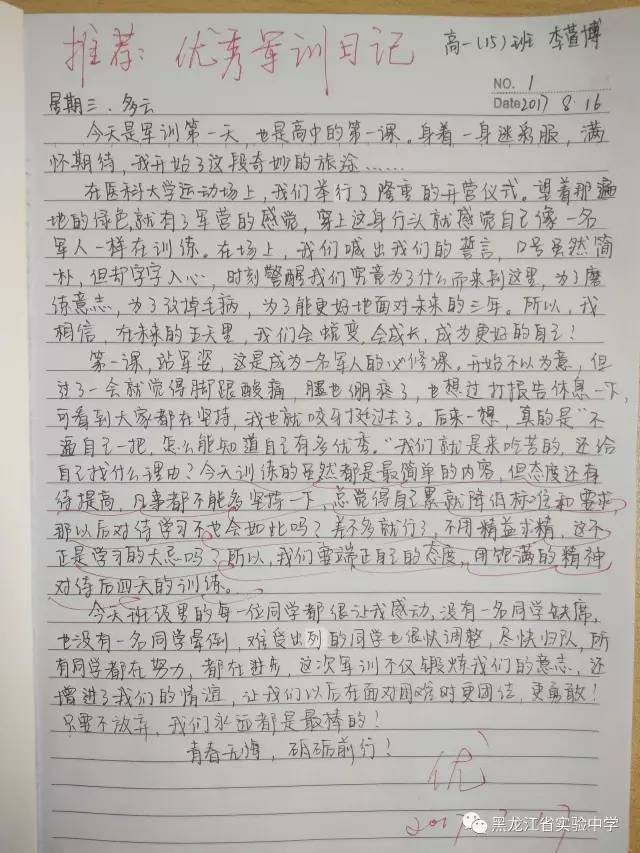 推荐：优秀军训日记
高一(15)班 李萱博
NO. 1
星期三.多云
Date 2017 8.16
今天是军训第一天，也是高中的第一课。身着一身迷彩服，满
怀期待，我开始了这段奇妙的旅途……
在医科大学运动场上，我们举行了隆重的开营仪式。望着那遍
地的绿色就有了军营的感觉，穿上这身行头就感觉自己像一名
军人一样在训练。在场上，我们喊出我们的誓言，口号虽然简
朴，但却字字入心，时刻警醒我们究竟为了什么而来到这里，为了磨
练意志，为了改掉毛病，为了能更好地面对未来的三年。所以，我
相信，在未来的五天里，我们会蜕变，会成长，成为更好的自己！
第一课，站军姿，这是成为一名军人的必修课。开始不以为意，但
过了一会就觉得脚跟酸痛，腿也绷疼了，也想过打报告休息一下，
可看到大家都在坚持，我也就咬牙挺过去了。后来一想，真的是“不
逼自己一把，怎么能知道自己有多优秀。”我们就是来吃苦的，还给
自己找什么理由？今天训练的虽然都是最简单的内容，但态度还有
待提高，凡事都不能多坚持一下，总觉得自己累就降低标准和要求，
那以后对待学习不也会如此吗？差不多就行了，不用精益求精，这不
正是学习的大忌吗？所以，我们要端正自己的态度，用饱满的精神
对待后四天的训练。
今天班级里的每一位同学都很让我感动，没有一名同学缺席，
也没有一名同学晕倒，难受出列的同学也很快调整，尽快归队，所
有同学都在努力，都在进步，这次军训不仅锻炼我们的意志，还
增进了我们的情谊，让我们以后在面对困难时更团结，更勇敢！
只要不放弃，我们永远都是最棒的！
青春无悔，砥砺前行！
优
2017
黑龙江省实验中学